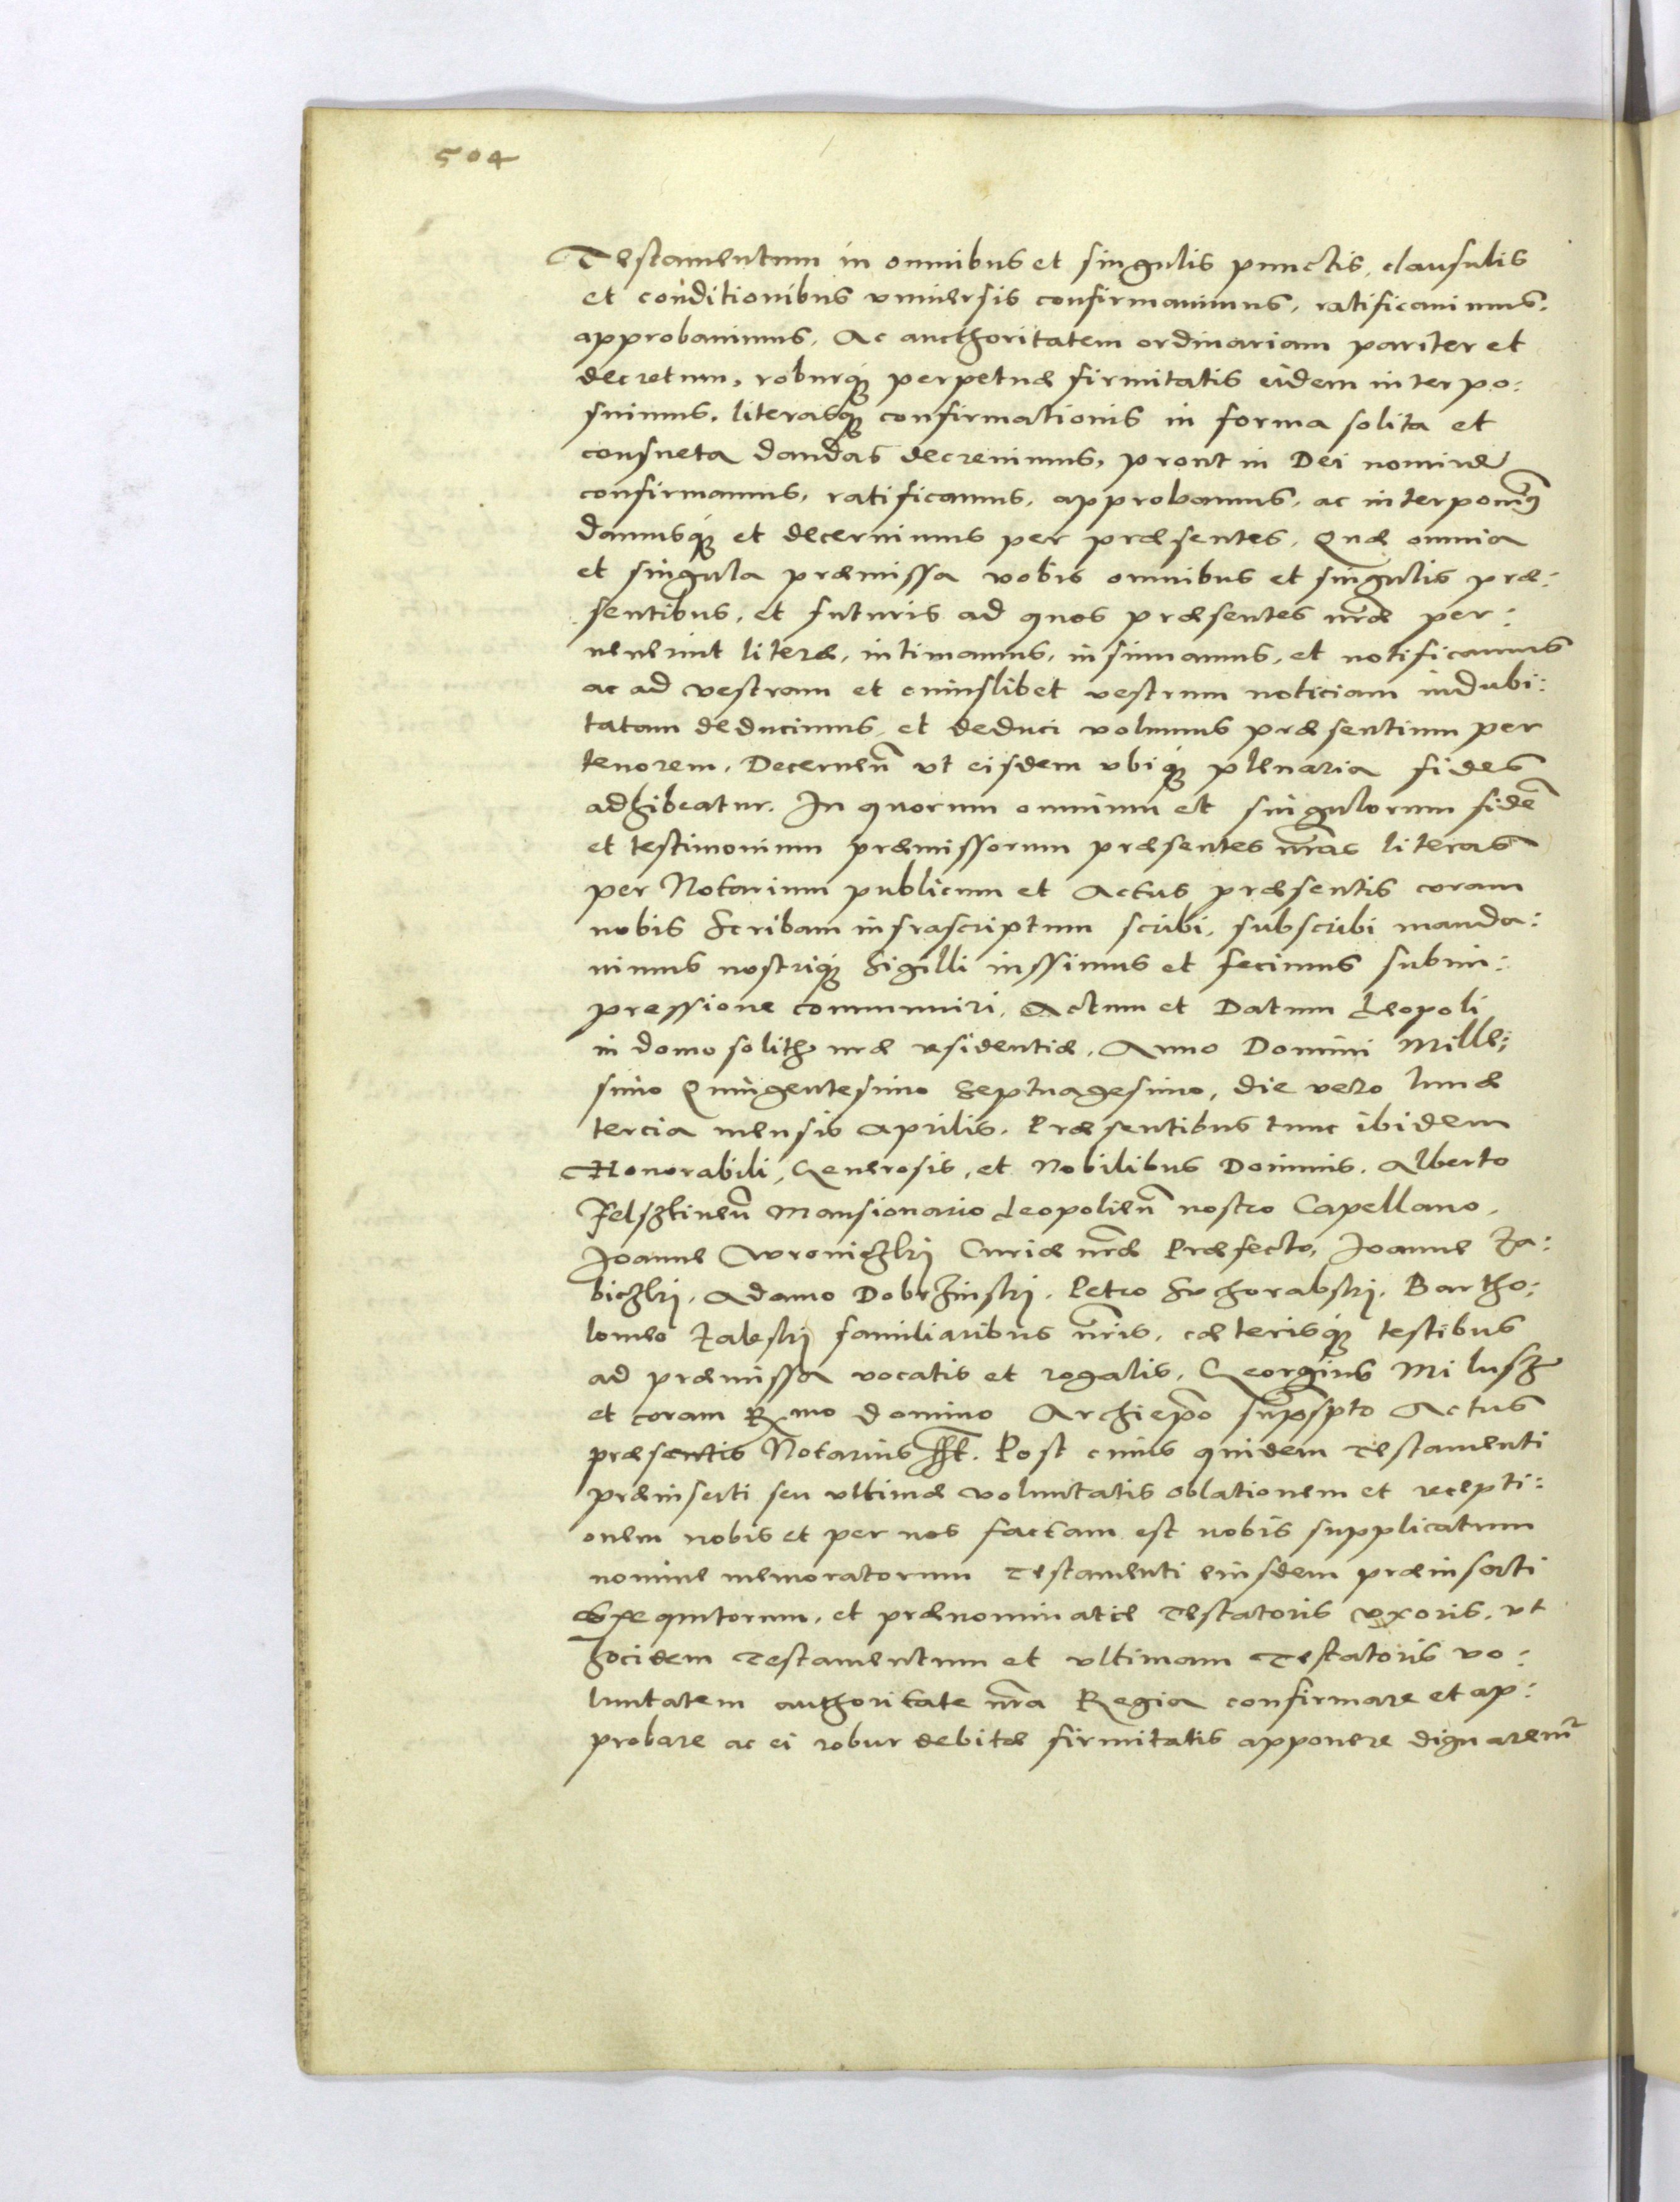 504
Testamentum in omnibus et singulis punctis, clausulis
et conditionibus vniuersis confirmauimus, ratificauimus,
approbauimus, Ac aucthoritatem ordinariam pariter et
decretum, roburq3 perpetuæ firmitatis eidem interpo:
suimus, literasq3 confirmationis in forma solita et
consueta dandas decreuimus, prout in Dei nomine
confirmamus, ratificamus, approbamus, ac interponim9
damusq3 et decernimus per præsentes, Quæ omnia
et singula præmissa vobis omnibus et singulis præ:
sentibus, et futuris ad quos præsentes nr̃æ per:
uenerint literæ, intimamus, insinuamus, et notificamus
ac ad vestram et cuiuslibet vestrum noticiam indubi:
tatam deducimus, et deduci volumus præsentium per
tenorem. Decerneñ vt eisdem vbiq3 plenaria fides
adhibeatur. In quorum omnium et singulorum fidẽ
et testimonium præmissorum præsentes nr̃as literas
per Notarium publicum et Actus præsentis coram
nobis Scribam infrascriptum scribi, subscribi manda:
uimus nostriq3 Sigilli iussimus et fecimus subim:
pressione communiri, Actum et Datum Leopoli
in domo solitæ nræ residentiæ, Anno Domini Mille:
simo Quingentesimo Septuagesimo, die vero lunæ
tercia mensis Aprilis. Præsentibus tunc ibidem
Honorabili, Generosis, et Nobilibus Dominis. Alberto
Felsztineñ Mansionario Leopolieñ nostro Capellano,
Joanne Wroniczkj Curiæ nr̃æ Præfecto, Joanne Za:
biczkj, Adamo Dobrzinskj, Petro Suchorabskj, Bartho:
lomeo Zaleskj familiaribus nr̃is, cæterisq3 testibus
ad præmissa vocatis et rogatis, Georgius Milusz
et coram Rmo domino Archiepõ suprasp̃to Actus
præsentis Notarius sst. Post cuius quidem Testamenti
præinserti seu vltimæ voluntatis oblationem et recepti:
onem nobis et per nos factam est nobis supplicatum
nomine memoratorum Testamenti eiusdem præinserti
exequutorum, et prænominatæ Testatoris vxoris, vt
hocidem Testamentum et vltimam Testatoris vo:
luntatem authoritate nr̃a Regia confirmare et ap:
probare ac ei robur debitæ firmitatis apponere dignarem̃r